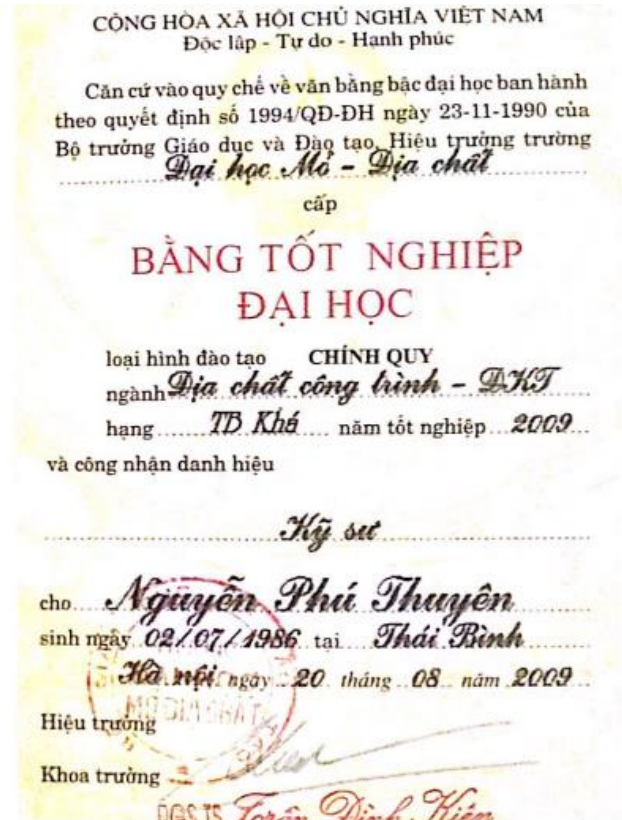 CỘNG HÒA XÃ HỘI CHỦ NGHĨA VIỆT NAM
Độc lập - Tự do - Hạnh phúc
Căn cứ vào quy chế về văn bằng bậc đại học ban hành
theo quyết định số 1994/QĐ-ĐH ngày 23-11-1990 của
Bộ trưởng Giáo dục và Đào tạo, Hiệu trưởng trường
Đại học Mỏ - Địa chất
cấp
BẰNG TỐT NGHIỆP
ĐẠI HỌC
loại hình đào tạo CHÍNH QUY
ngành Địa chất công trình - ĐKT
hạng TB Khá năm tốt nghiệp 2009
và công nhận danh hiệu
Kỹ sư
cho Nguyễn Phú Thuyên
sinh ngày 02/07/1986 tại Thái Bình
Hà nội ngày 20 tháng 08 năm 2009
Hiệu trưởng
MỎ ĐỊA CHẤT
Khoa trưởng
PGS.TS Trần Đình Kiên